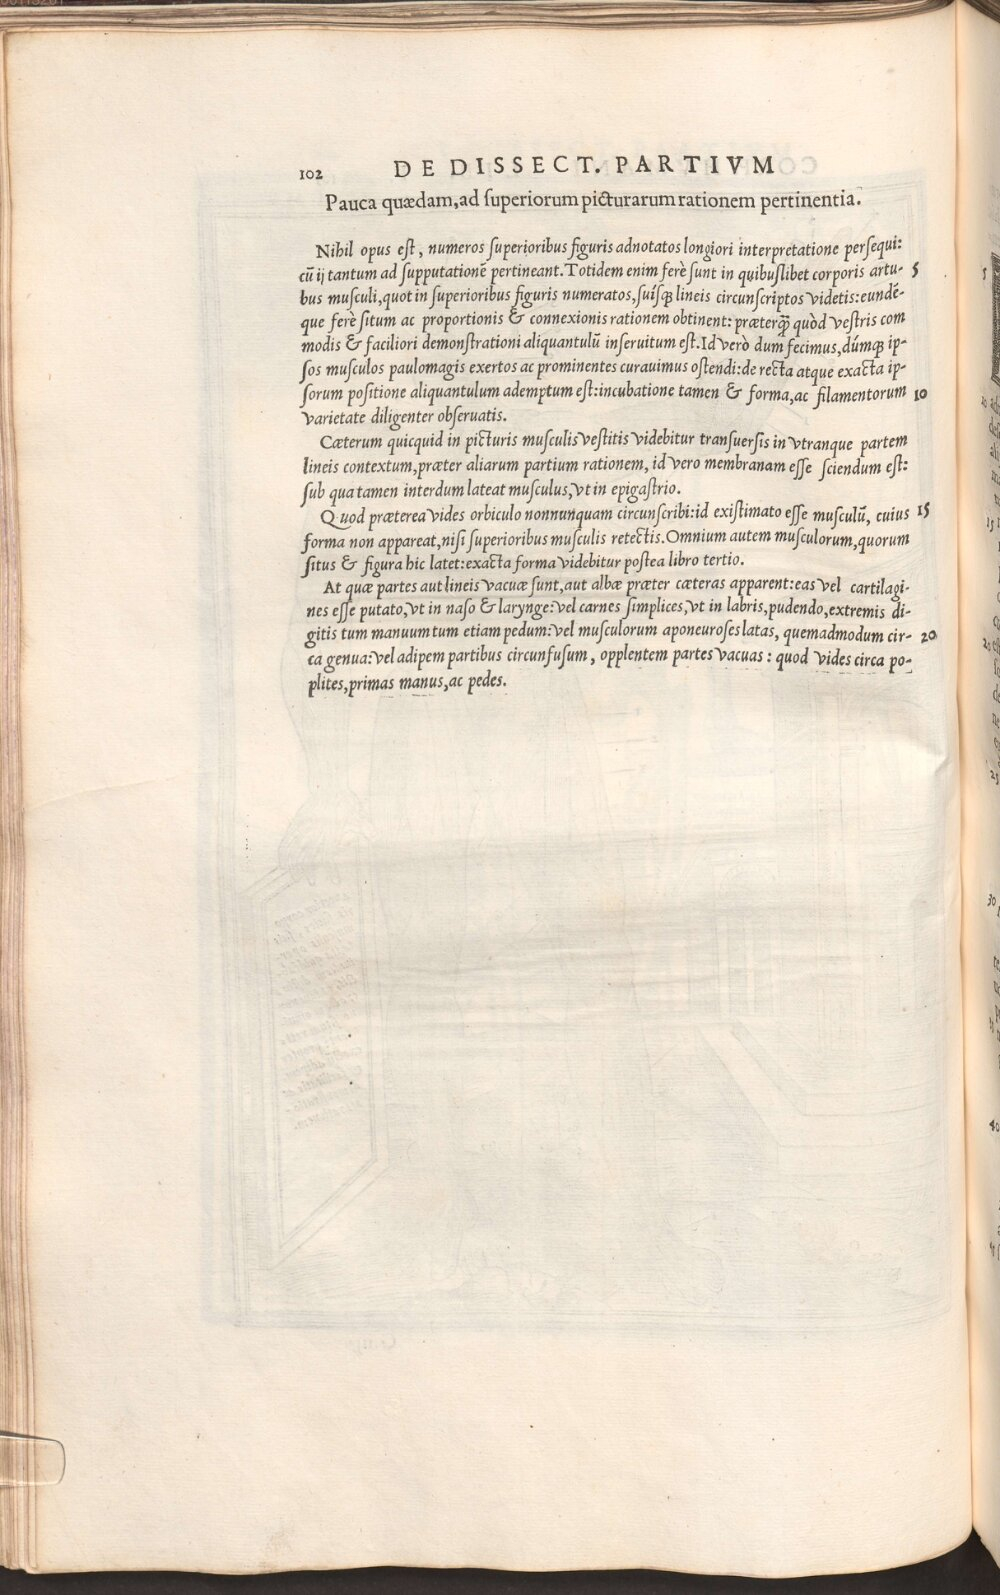 102 DE DISSECT. PARTIVM
Pauca quædam, ad superiorum picturarum rationem pertinentia.
Nihil opus est, numeros superioribus figuris adnotatos longiori interpretatione persequi:
cū ij tantum ad supputationē pertineant. Totidem enim ferè sunt in quibuslibet corporis artu- 5
bus musculi, quot in superioribus figuris numeratos, suísq; lineis circunscriptos videtis: eundē-
que ferè situm ac proportionis & connexionis rationem obtinent: præterq̃ quòd vestris com
modis & faciliori demonstrationi aliquantulū inseruitum est. Id verò dum fecimus, dúmq; ip-
sos musculos paulomagis exertos ac prominentes curauimus ostendi: de recta atque exacta ip-
sorum positione aliquantulum ademptum est: incubatione tamen & forma, ac filamentorum 10
varietate diligenter obseruatis.
Cæterum quicquid in picturis musculis vestitis videbitur transuersis in vtranque partem
lineis contextum, præter aliarum partium rationem, id vero membranam esse sciendum est:
sub qua tamen interdum lateat musculus, vt in epigastrio.
Quod præterea vides orbiculo nonnunquam circunscribi: id existimato esse musculū, cuius 15
forma non appareat, nisi superioribus musculis retectis. Omnium autem musculorum, quorum
situs & figura hic latet: exacta forma videbitur postea libro tertio.
At quæ partes aut lineis vacuæ sunt, aut albæ præter cæteras apparent: eas vel cartilagi-
nes esse putato, vt in naso & larynge: vel carnes simplices, vt in labris, pudendo, extremis di-
gitis tum manuum tum etiam pedum: vel musculorum aponeuroses latas, quemadmodum cir- 20
ca genua: vel adipem partibus circunfusum, opplentem partes vacuas: quod vides circa po-
plites, primas manus, ac pedes.